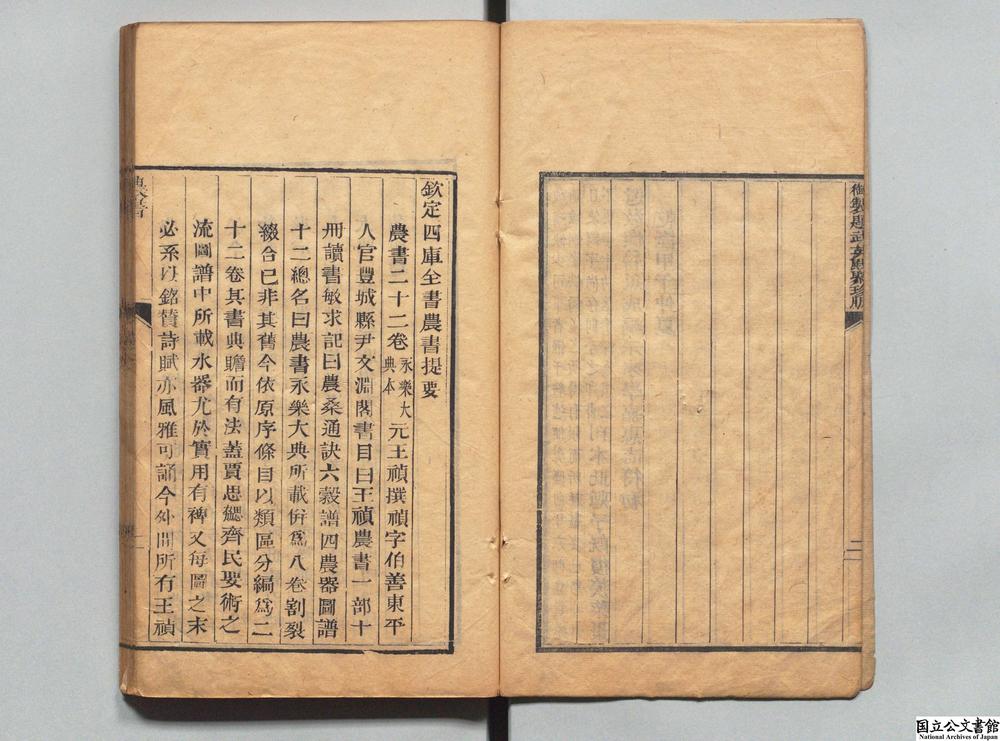 御製題武英殿聚珍版
二
欽定四庫全書農書提要
農書二十二卷永樂大典本元王禎撰禎字伯善東平
人官豐城縣尹文淵閣書目曰王禎農書一部十
冊讀書敏求記曰農桑通訣六穀譜四農器圖譜
十二總名曰農書永樂大典所載併爲八卷割裂
綴合已非其舊今依原序條目以類區分編爲二
十二卷其書典贍而有法蓋賈思勰齊民要術之
流圖譜中所載水器尤於實用有裨又每圖之末
必系以銘贊詩賦亦風雅可誦今外間所有王禎
国立公文書館
National Archives of Japan